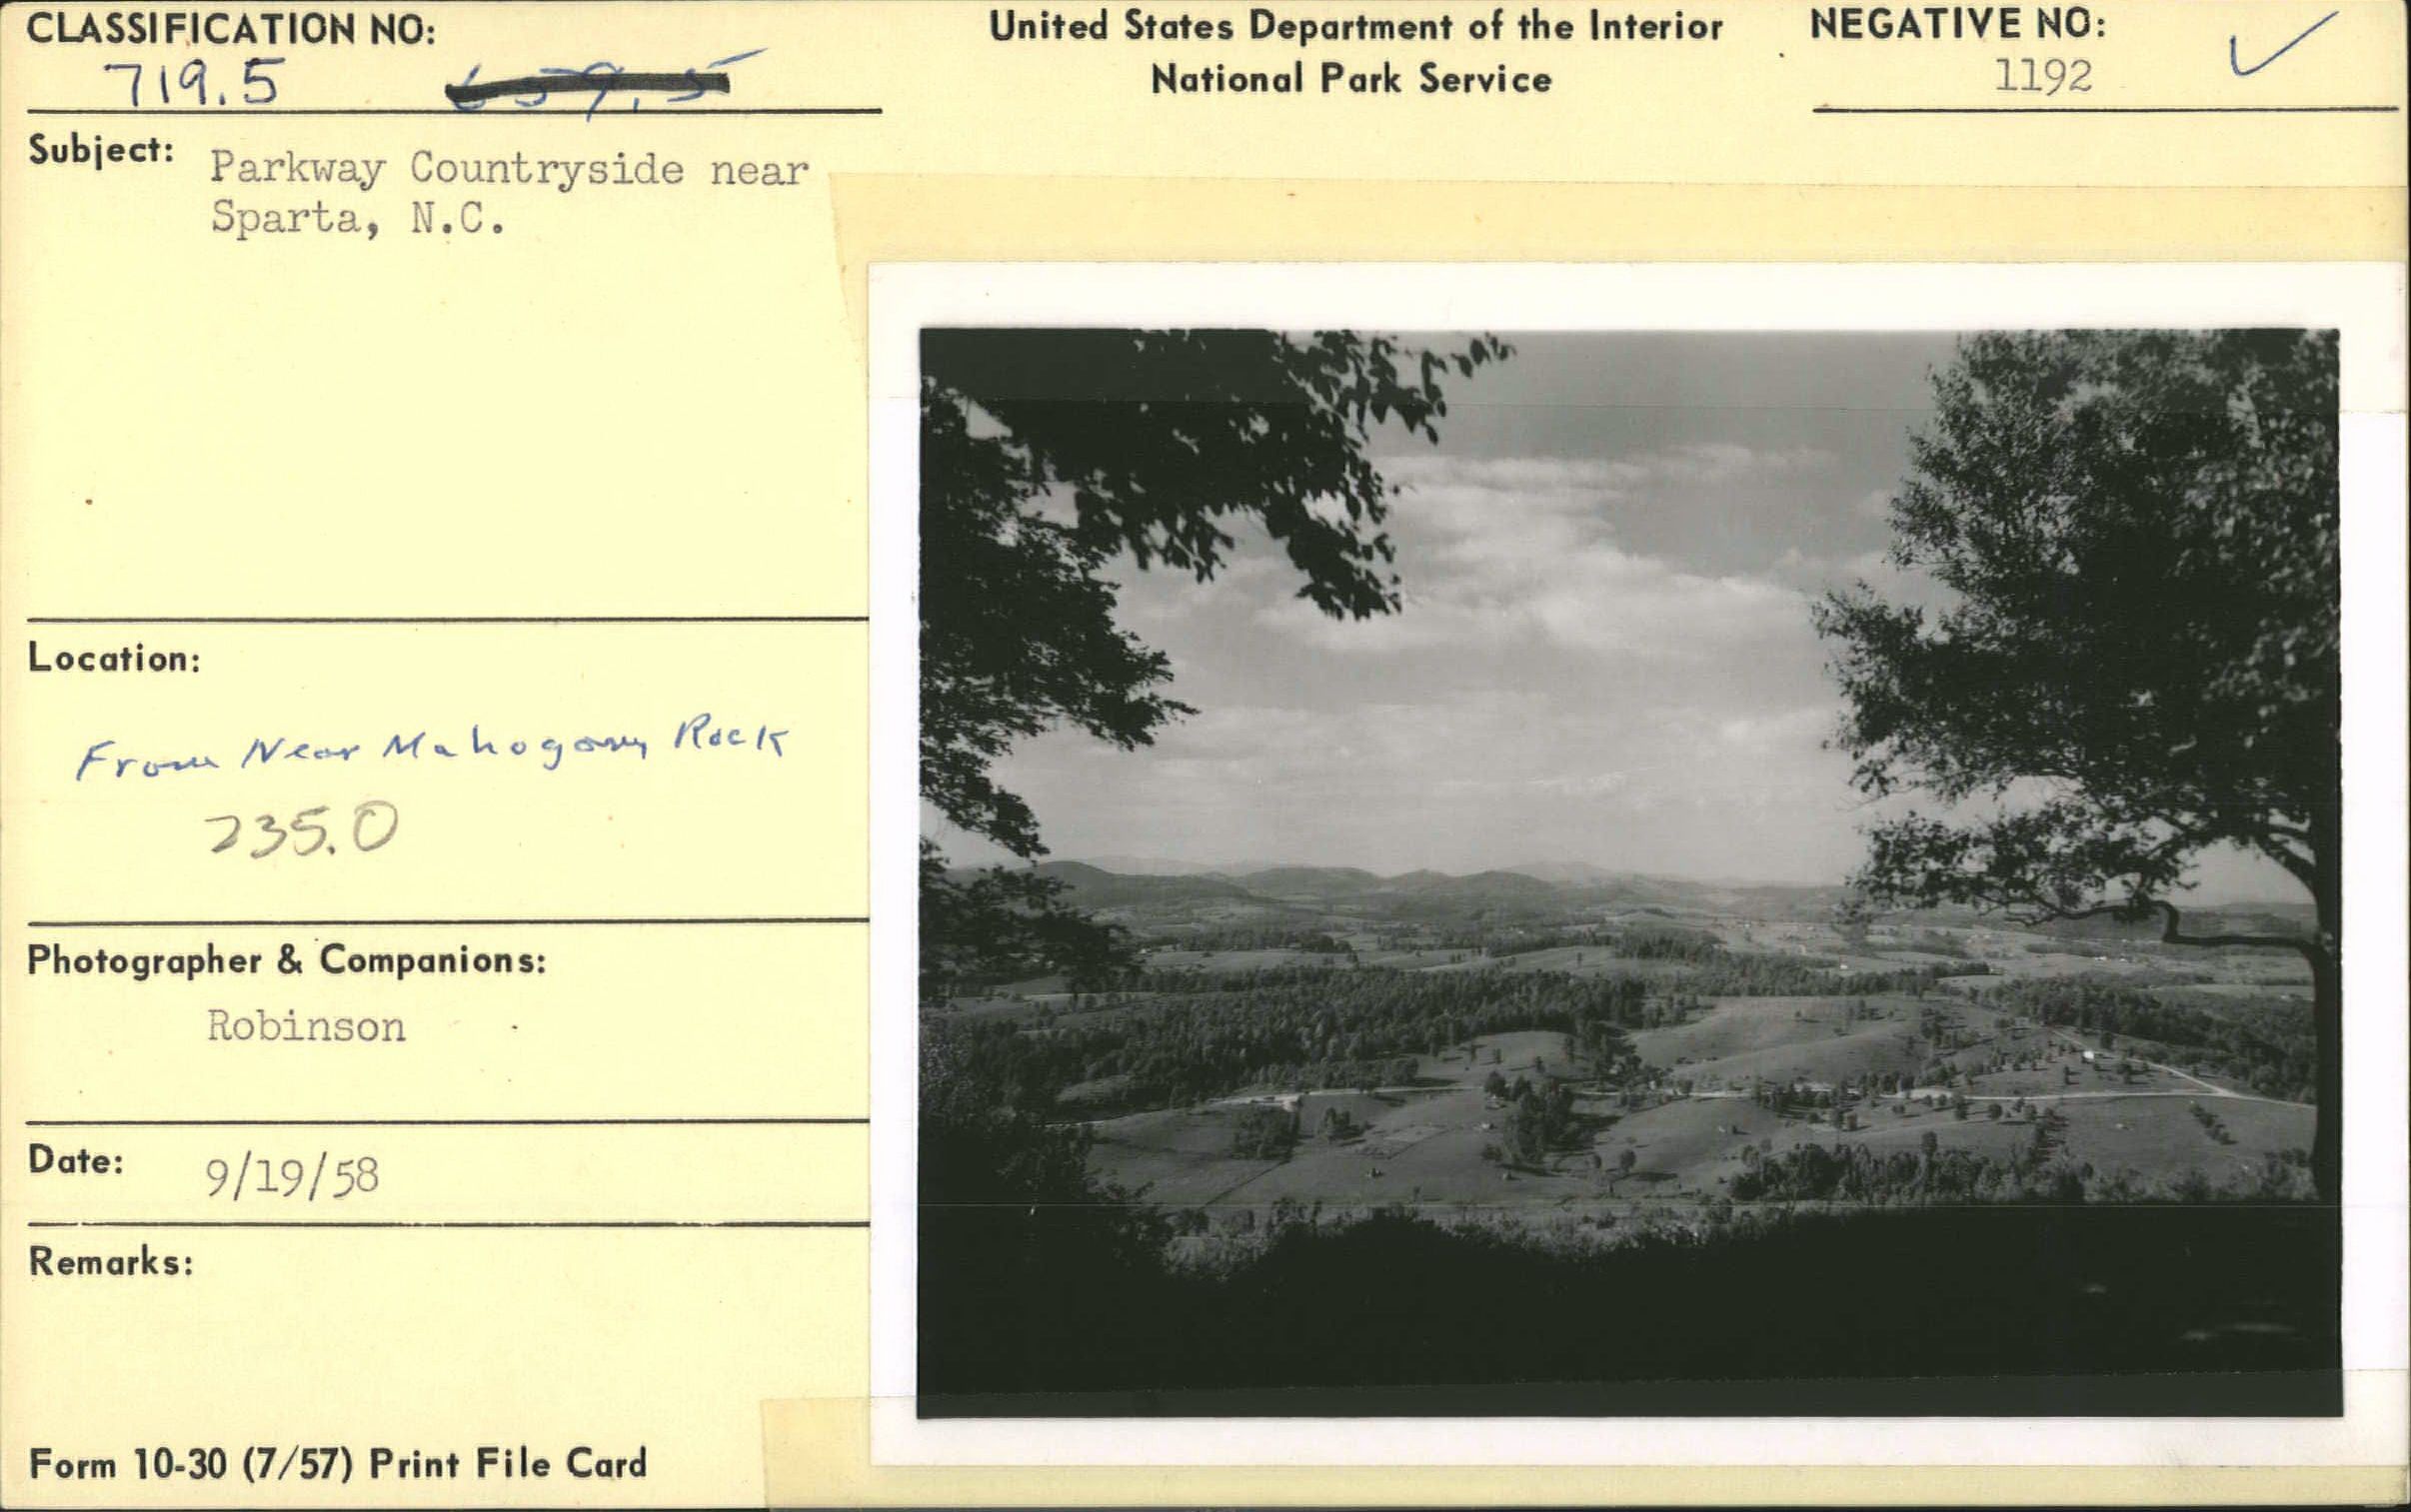 CLASSIFICATION NO:
719.5
United States Department of the Interior
National Park Service
NEGATIVE NO:
1192
Subject: Parkway Countryside near
Sparta, N.C.
Location:
From Near Mahogany Rock
235.0
Photographer & Companions:
Robinson
Date: 9/19/58
Remarks:
Form 10-30 (7/57) Print File Card